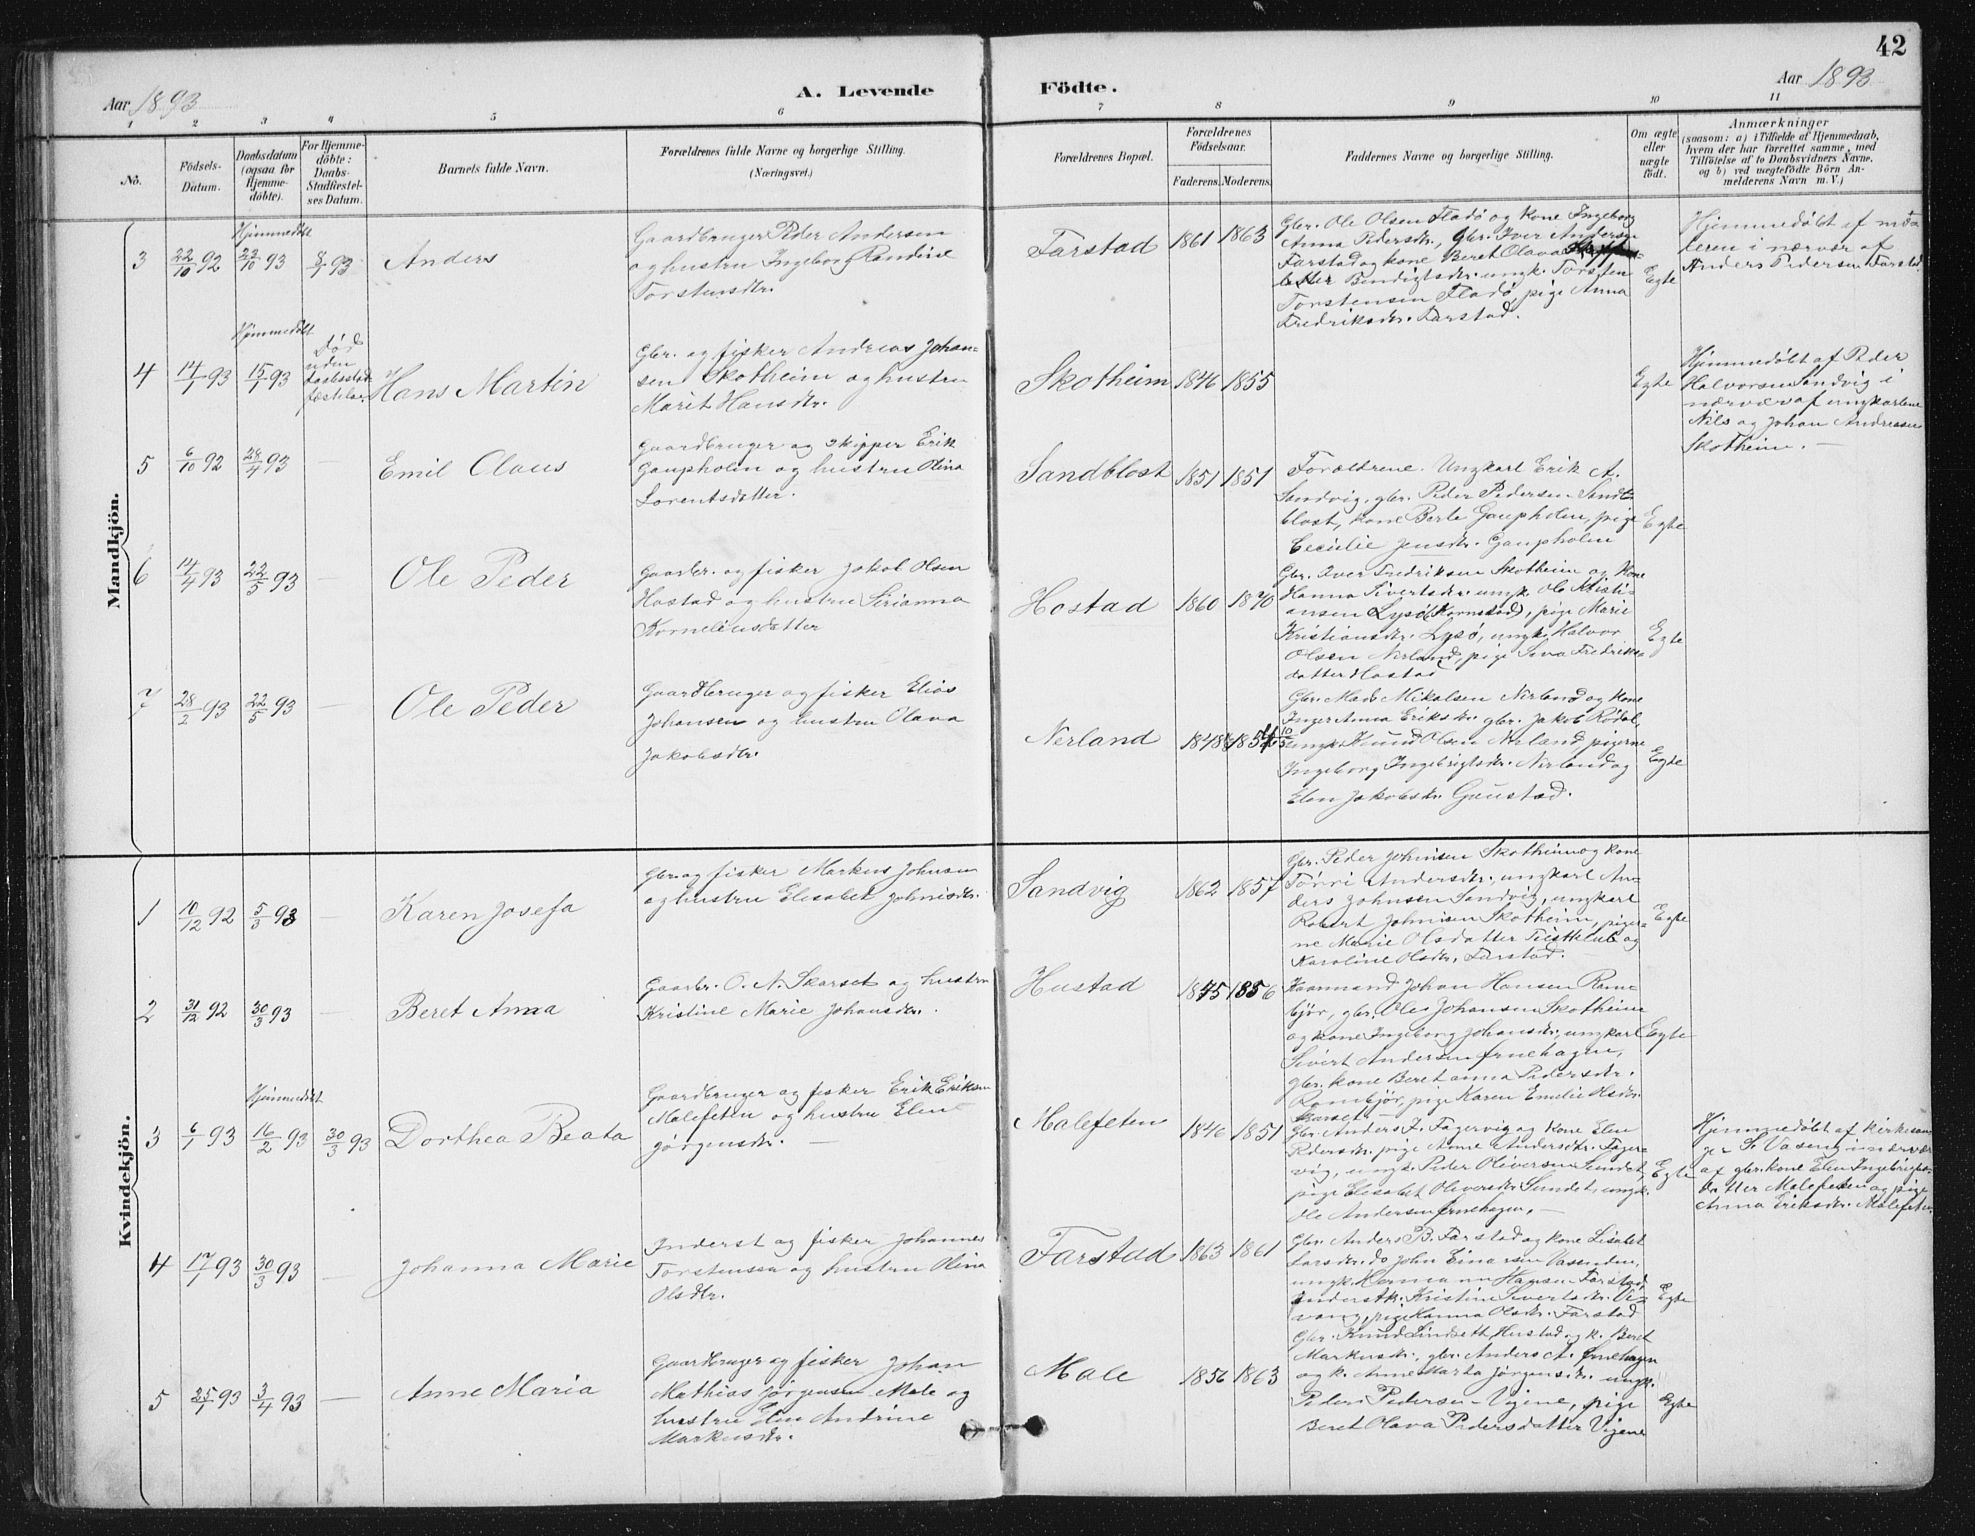 42
Aar 1893
A. Levende
Födte.
Aar 1893
1 2 3 4 5 6 7 8 9 10 11
No.
Födsels-
Datum.
Daabsdatum
(ogsaa for
Hjemme-
döbte).
For Hjemme-
döbte:
Daabs-
Stadfæstel-
ses Datum.
Barnets fulde Navn.
Forældrenes fulde Navne og borgerlige Stilling.
(Næringsvei.)
Forældrenes Bopæl.
Forældrenes
Födselsaar.
Faderens. Moderens.
Faddernes Navne og borgerlige Stilling.
Om ægte
eller
uægte
födt.
Anmærkninger
(saasom: a) i Tilfælde af Hjemmedaab,
hvem der har forrettet samme, med
Tilföielse af to Daabsvidners Navne,
og b) ved uægtefödte Börn An-
melderens Navn m. V.)
Mandkjön.
3
22/10 92
Hjemmedøbt
22/10 93
8/1 93
Anders
Gaardbruger Peder Andersen
og hustru Ingeborg Randine
Torstensdtr.
Farstad
1861 1863
Gbr. Ole Olsen Fladø og kone Ingeborg
Anna Pedersdtr., Gbr. Iver Andersen
Farstad og kone Beret Olava
Bendigtsdtr. ungk. Torsten
Torstensen Fladø, pige Anna
Fredriksdtr. Farstad.
Egte
Hjemmedøbt af
i nærvær af
Anders Pedersen Farstad
4
14/1 93
Hjemmedøbt
15/1 93
Død
uden
Hans Martin
Gbr. og fisker Andreas Johan-
sen Skotheim og hustru
Marit Hansdtr.
Skotheim
1846 1855
Egte
Hjemmedøbt af Peder
Halvorsen Sandvig i
nærvær af ungkarlene
Nils og Johan Andreasen
Skotheim. —
5
6/10 92
28/4 93
—
Emil Olaus
Gaardbruger og skipper Erik
Gaupholm og hustru Olina
Lorentsdatter.
Sandblost
1851 1851
Forældrene. Ungkarl Erik A.
Sandvig, gbr. Peder Pedersen Sand-
blost, kone Berte Gaupholm, pige
Cecilie Jensdtr. Gaupholm
Egte
6
14/4 93
22/5 93
—
Ole Peder
Gaardbr. og fisker Jakob Olsen
Hostad og hustru Sirianna
Korneliusdatter
Hostad
1860 1870
Gbr. Iver Fredriksen Skotheim og kone
Hanna Sivertsdtr. ungk. Ole Kristi-
ansen Lysø (Kornstad), pige Marie
Kristiansdtr. Lysø, ungk. Halvor
Olsen Nerland, pige Fredriks-
datter Hostad
Egte
7
28/2 93
22/5 93
—
Ole Peder
Gaardbruger og fisker Elias
Johansen og hustru Olava
Jakobsdtr.
Nerland
1848 1854
Gbr. Mads Mikalsen Nerland og kone
Inger Anna Eriksdtr. gbr. Jakob Rødal,
ungk. Knud Olsen Nerland, pigerne
Ingeborg Ingebrigtsdtr. Nerland og
Elen Jakobsdtr. Gaustad.
Egte
Kvindekjön.
1
10/12 92
5/3 93
—
Karen Josefa
Gbr. og fisker Markus Johnsen
og hustru Elisabet Johnsdtr.
Sandvig
1862 1857
Gbr. Peder Johnsen Skotheim og kone
Andersdtr., ungkarl An-
ders Johnsen Sandvig, ungkarl
Robert Johnsen Skotheim, piger-
ne Marie Olsdatter og
Karoline Olsdtr. Farstad.
Egte
2
31/12 92
30/3 93
—
Beret Anna
Gaardbr. O. N. Skarset og hustru
Kristine Marie Johansdtr.
Hustad
1845 1856
Kaarmand Johan Hansen Rom-
bjør, gbr. Ole Johansen Skotheim
og kone Ingeborg Johansdtr., ungkarl
Sivert Andersen Ørnehagen,
gbr. kone Beret Anna Pedersdtr.
Rombjør, pige Karen Emilie Olsdtr.
Skarset. —
Egte
3
6/1 93
Hjemmedøbt
16/2 93
30/3 93
Dorthea Beata
Gaardbruger og fisker Erik Eriksen
Malefeten og hustru Elen
Jørgensdtr. —
Malefeten
1846 1851
Gbr. Anders J. Fagervig og kone Elen
Pedersdtr. pige Anne Andersdtr. Fager-
vig, ungk. Peder Oliversen Sundet,
pige Elisabet Oliversdtr. Sundet, ungk.
Ole Andersen Ørnehagen. —
Egte
Hjemmedøbt af kirkesan-
ger S. Vaseng i nærvær
af gbr. kone Elen Ingebrigts-
datter Malefeten og pige
Anna Eriksdtr. Malefeten
4
17/1 93
30/3 93
—
Johanna Marie
Inderst og fisker Johannes
Torstensen og hustru Olina
Olsdtr.
Farstad
1863 1861
Gbr. Anders B. Farstad og kone Lisabet
Larsdtr. do John Einarsen Vassenden,
ungk. Hermann Hansen Farstad,
Kristine Sivertsdtr.
pige Hanna Olsdtr. Farstad
Egte
5
25/1 93
3/4 93
—
Anne Maria
Gaardbruger og fisker Johan
Mathias Jørgensen Male og
hustru Elen Andrine
Markusdtr.
Male
1856 1863
Gbr. Knud Lindseth Hustad og k. Beret
Markusdtr., gbr. Anders A. Ørnehagen
og k. Anne Marta Jørgensdtr. ungk.
Peder Pedersen Vigene, pige
Beret Olava Pedersdatter Vigene
Egte